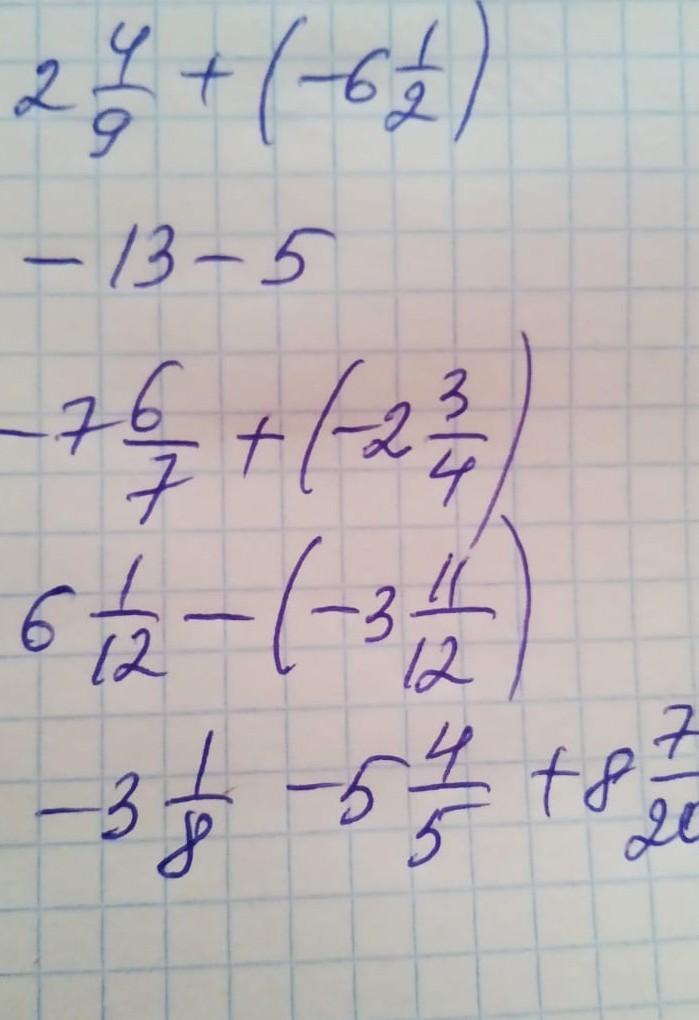 2 4/9 + (-6 1/2)
- 13 - 5
-7 6/7 + (-2 3/4)
6 1/12 - (-3 11/12)
-3 1/8 - 5 4/5 + 8 7/20